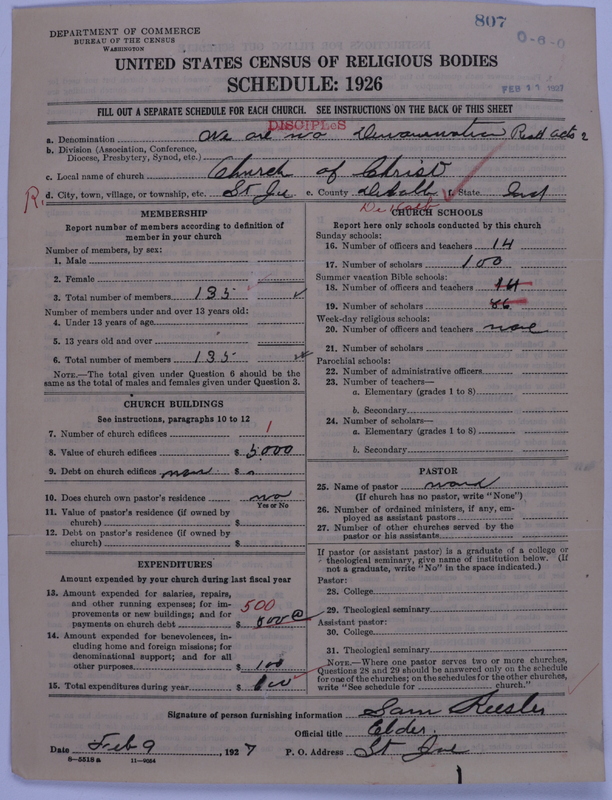 807
0-6-0
DEPARTMENT OF COMMERCE
BUREAU OF THE CENSUS
WASHINGTON
UNITED STATES CENSUS OF RELIGIOUS BODIES
SCHEDULE: 1926
FEB 1927
FILL OUT A SEPARATE SCHEDULE FOR EACH CHURCH. SEE INSTRUCTIONS ON THE BACK OF THIS SHEET
DISCIPLES
a. Denomination are no Denomination Read acts 2
b. Division (Association, Conference,
Diocese, Presbytery, Synod, etc.)
c. Local name of church Church of Christ
R. d. City, town, village, or township, etc. St Joe e. County DeKalb f. State Ind
De Kalb
MEMBERSHIP
Report number of members according to definition of
member in your church
Number of members, by sex:
1. Male
2. Female
3. Total number of members 135
Number of members under and over 13 years old:
4. Under 13 years of age
5. 13 years old and over
6. Total number of members 135
NOTE.—The total given under Question 6 should be
same as the total of males and females given under Question 3.
CHURCH BUILDINGS
See instructions, paragraphs 10 to 12
7. Number of church edifices 1
8. Value of church edifices $ 5,000
9. Debt on church edifices none $
10. Does church own pastor's residence no
Yes or No
11. Value of pastor's residence (if owned by
church) $
12. Debt on pastor's residence (if owned by
church) $
EXPENDITURES
Amount expended by your church during last fiscal year
13. Amount expended for salaries, repairs,
and other running expenses; for im-
provements or new buildings; and for
payments on church debt $ 500 800
14. Amount expended for benevolences, in-
cluding home and foreign missions; for
denominational support; and for all
other purposes $ 100
15. Total expenditures during year $ 600
CHURCH SCHOOLS
Report here only schools conducted by this church
Sunday schools:
16. Number of officers and teachers 14
17. Number of scholars 100
Summer vacation Bible schools:
18. Number of officers and teachers 14
19. Number of scholars 86
Week-day religious schools:
20. Number of officers and teachers none
21. Number of scholars
Parochial schools:
22. Number of administrative officers
23. Number of teachers—
a. Elementary (grades 1 to 8)
b. Secondary
24. Number of scholars—
a. Elementary (grades 1 to 8)
b. Secondary
PASTOR
25. Name of pastor
(If church has no pastor, write "None")
26. Number of ordained ministers, if any, em-
ployed as assistant pastors
27. Number of other churches served by the
pastor or his assistants
If pastor (or assistant pastor) is a graduate of a college or
theological seminary, give name of institution below. (If
not a graduate, write "No" in the space indicated.)
Pastor:
28. College
29. Theological seminary
Assistant pastor:
30. College
31. Theological seminary
NOTE.—Where one pastor serves two or more churches,
Questions 28 and 29 should be answered only on the schedule
for one of the churches; on the schedules for the other churches,
write "See schedule for church."
Signature of person furnishing information Sam Reesler
Official title Elder
Date Feb 9, 1927 P. O. Address St Joe
8—5518 a 11—9054